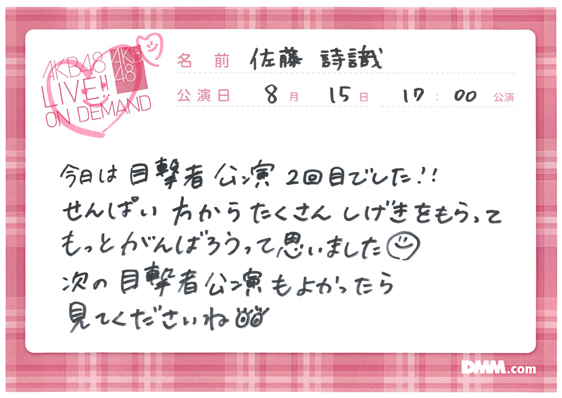 AKB48
LIVE!!
ON DEMAND
AKB
48
名前 佐藤 詩識
公演日 8月 15日 17:00 公演
今日は 目撃者 公演 2回目でした!!
せんぱい方からたくさん しげきをもらって
もっとがんばろうって思いました
次の目撃者公演もよかったら
見てくださいね
DMM.com